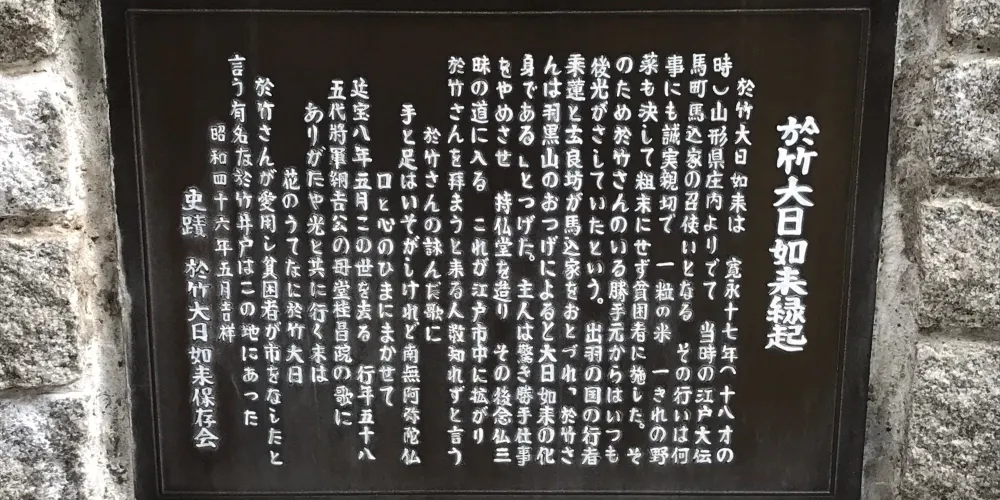 於竹大日如来縁起
於竹大日如来は 寛永十七年(十八才の
時)山形県庄内よりでて 当時の江戸大伝
馬町馬込家の召使いとなる その行いは何
事にも誠実親切で 一粒の米 一きれの野
菜も決して粗末にせず貧困者に施した。そ
のため於竹さんのいる勝手元からはいつも
後光がさしていたという。 出羽の国の行者
乗蓮と玄良坊が馬込家をおとづれ、於竹さ
んは羽黒山のおつげによると大日如来の化
身である」とつげた。 主人は驚き勝手仕事
をやめさせ 持仏堂を造り その後念仏三
昧の道に入る これが江戸市中に拡がり
於竹さんを拝まうと来る人数知れずと言う
於竹さんの詠んだ歌に
手と足はいそがしけれど南無阿弥陀仏
口と心のひまにまかせて
延宝八年五月この世を去る 行年五十八
五代将軍綱吉公の母堂桂昌院の歌に
ありがたや光と共に行く末は
花のうてなに於竹大日
於竹さんが愛用し貧困者が市をなしたと
言う有名な於竹井戸はこの地にあった
昭和四十六年五月吉祥
史蹟 於竹大日如来保存会